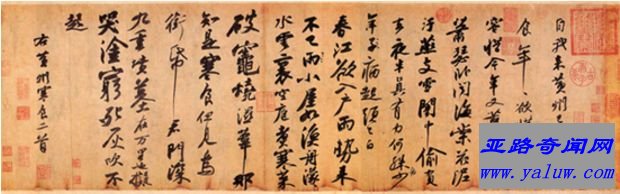 自我來黃州已
食年〻欲惜
容惜今年又苦
蕭瑟臥聞海棠花泥
汙燕支雪闇中偷負
去夜半真有力何殊少
年子病起須已白
春江欲入戶雨勢來
不已雨小屋如漁舟濛
水雲裏空庖煮寒菜
破竈燒濕葦那
知是寒食但見烏
銜帋君門深
九重墳墓在万里也擬
哭塗窮死灰吹不
起
右黃州寒食二首
亚路奇闻网
www.yaluw.com